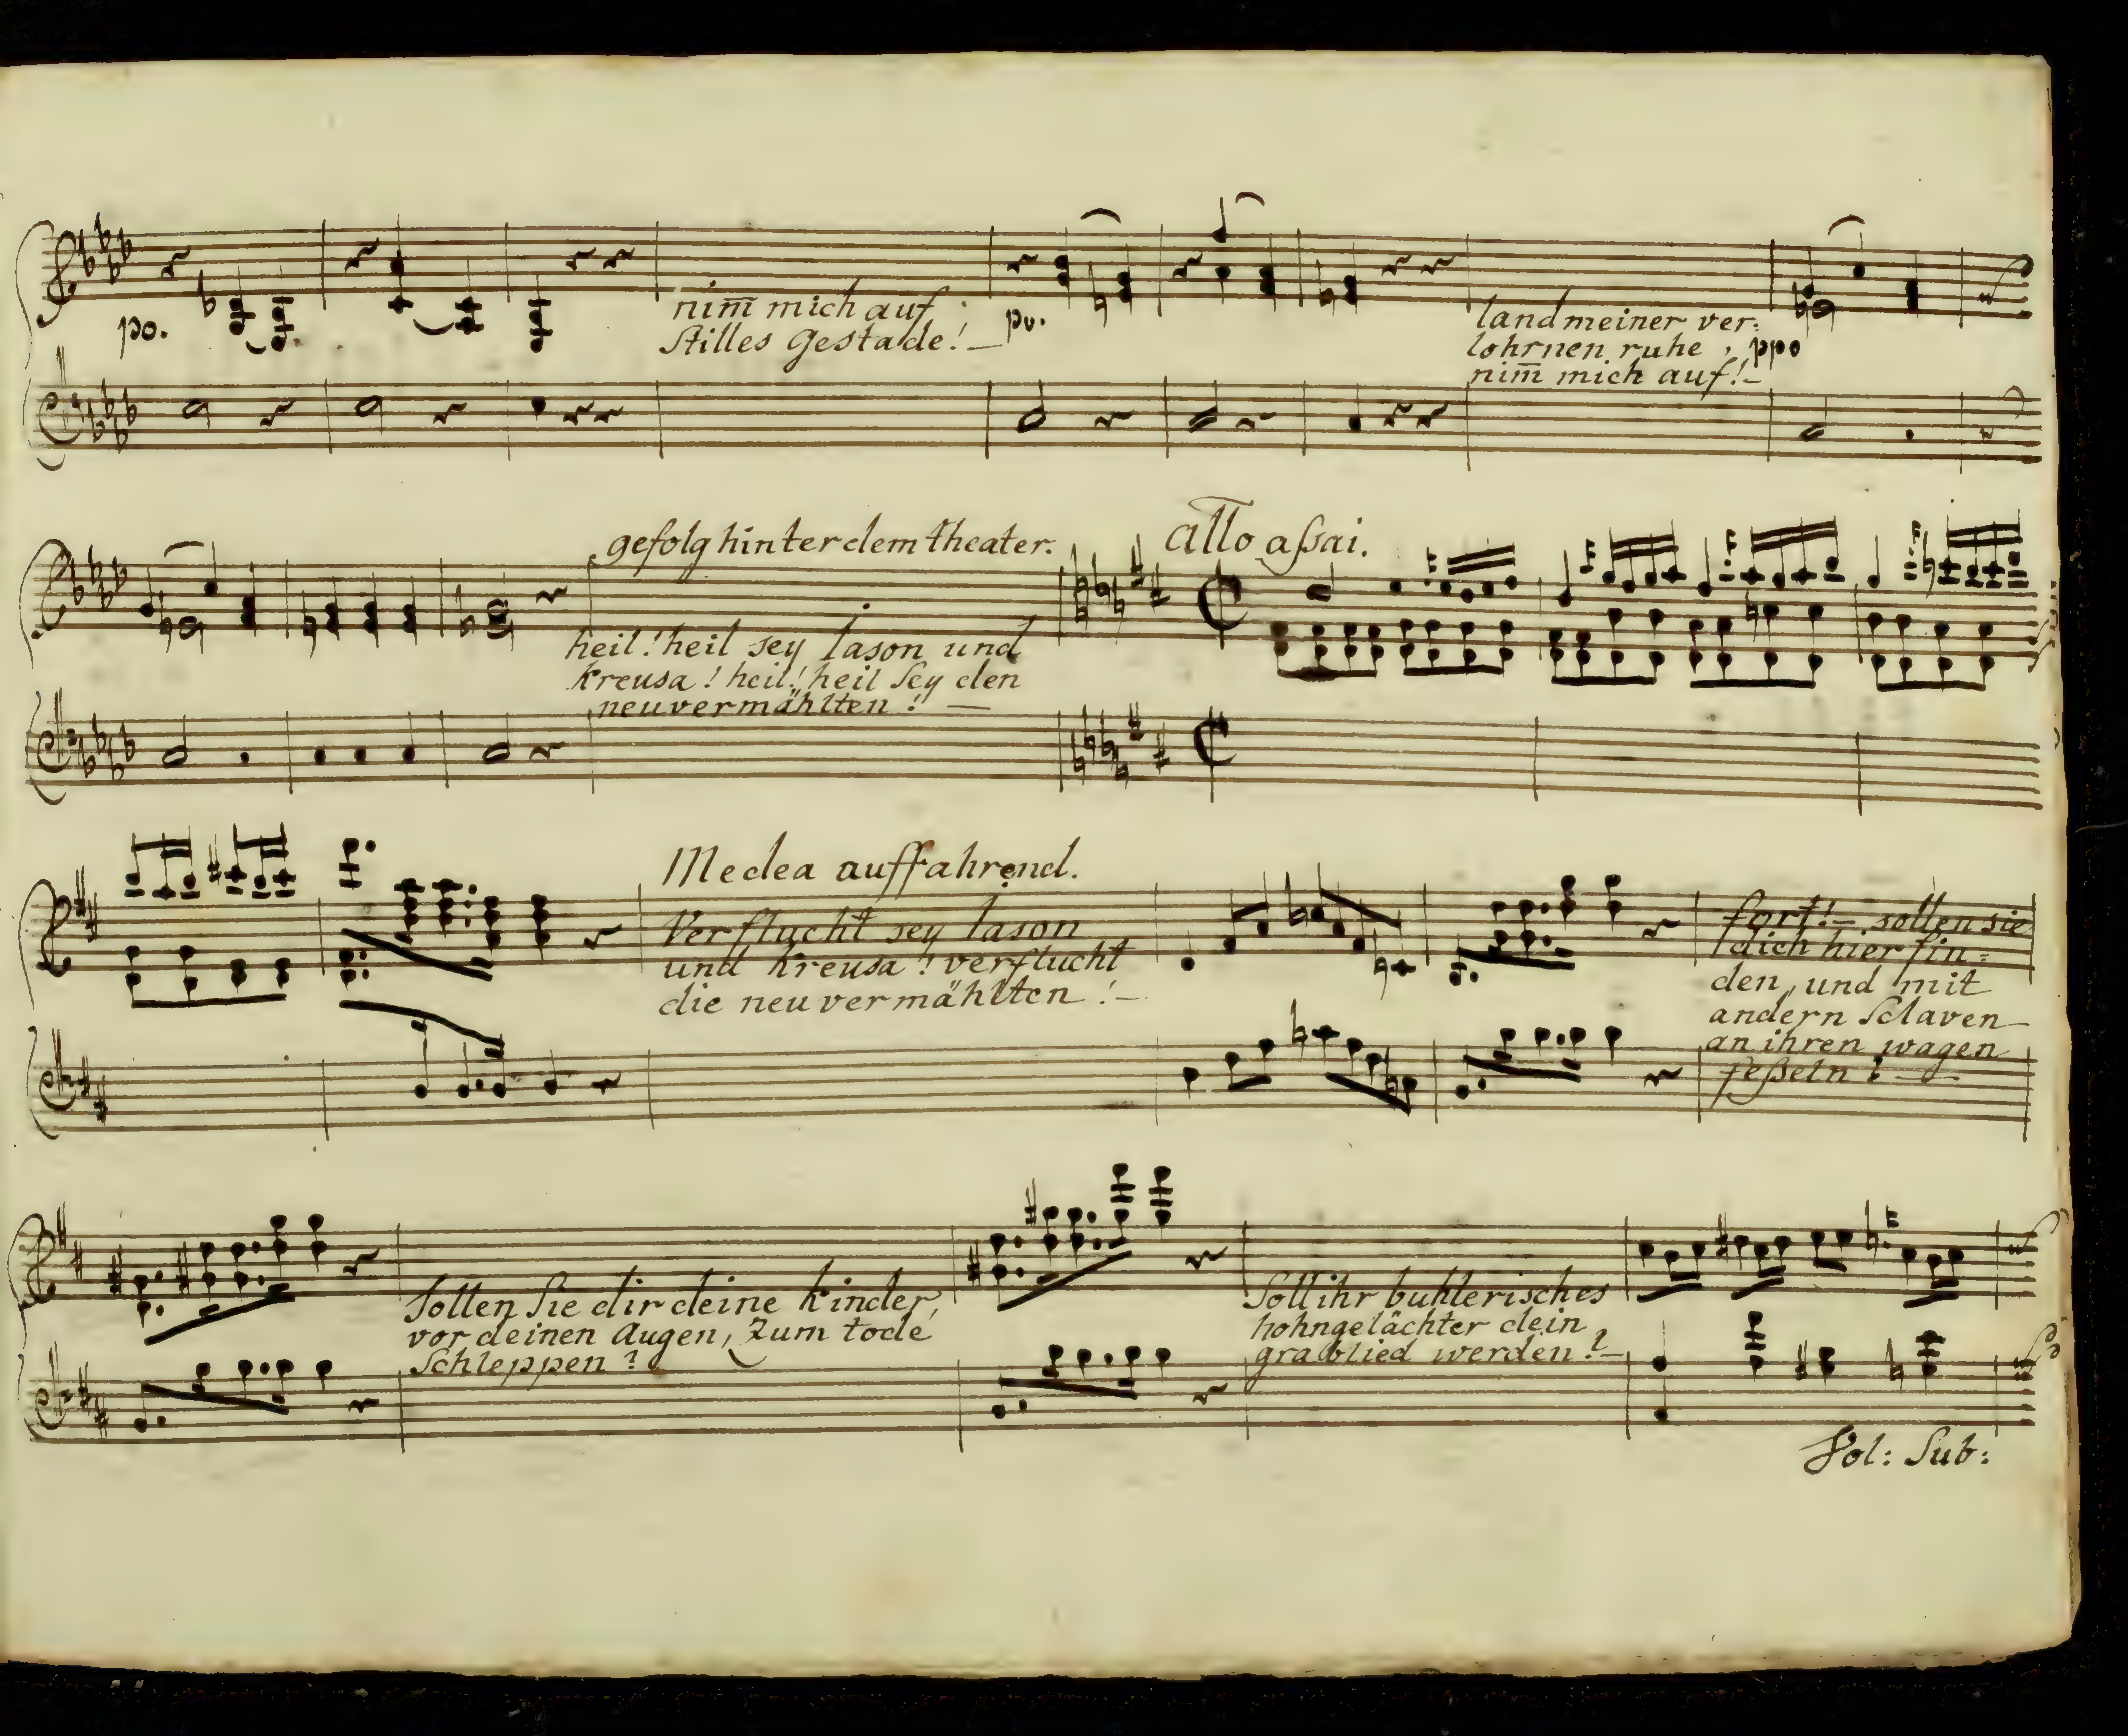 nim̄ mich auf
Stilles Gestade! —
po.
po.
land meiner ver:
lohrnen ruhe,
nim̄ mich auf! –
ppo
gefolg hinter dem theater.
heil! heil sey Iason und
Kreusa! heil! heil Sey den
neuvermählten! —
Allo aßai.
Medea auffahrend.
Verflucht sey Iason
und Kreusa! verflucht
die neuvermählten! –
fort! – sollen sie
dich hier fin=
den, und mit
andern Sclaven
an ihren wagen
feßeln? —
Sollen Sie dir deine Kinder,
vor deinen Augen, Zum tode
Schleppen?
Soll ihr buhlerisches
hohngelächter dein
grablied werden? –
Vol: Sub: